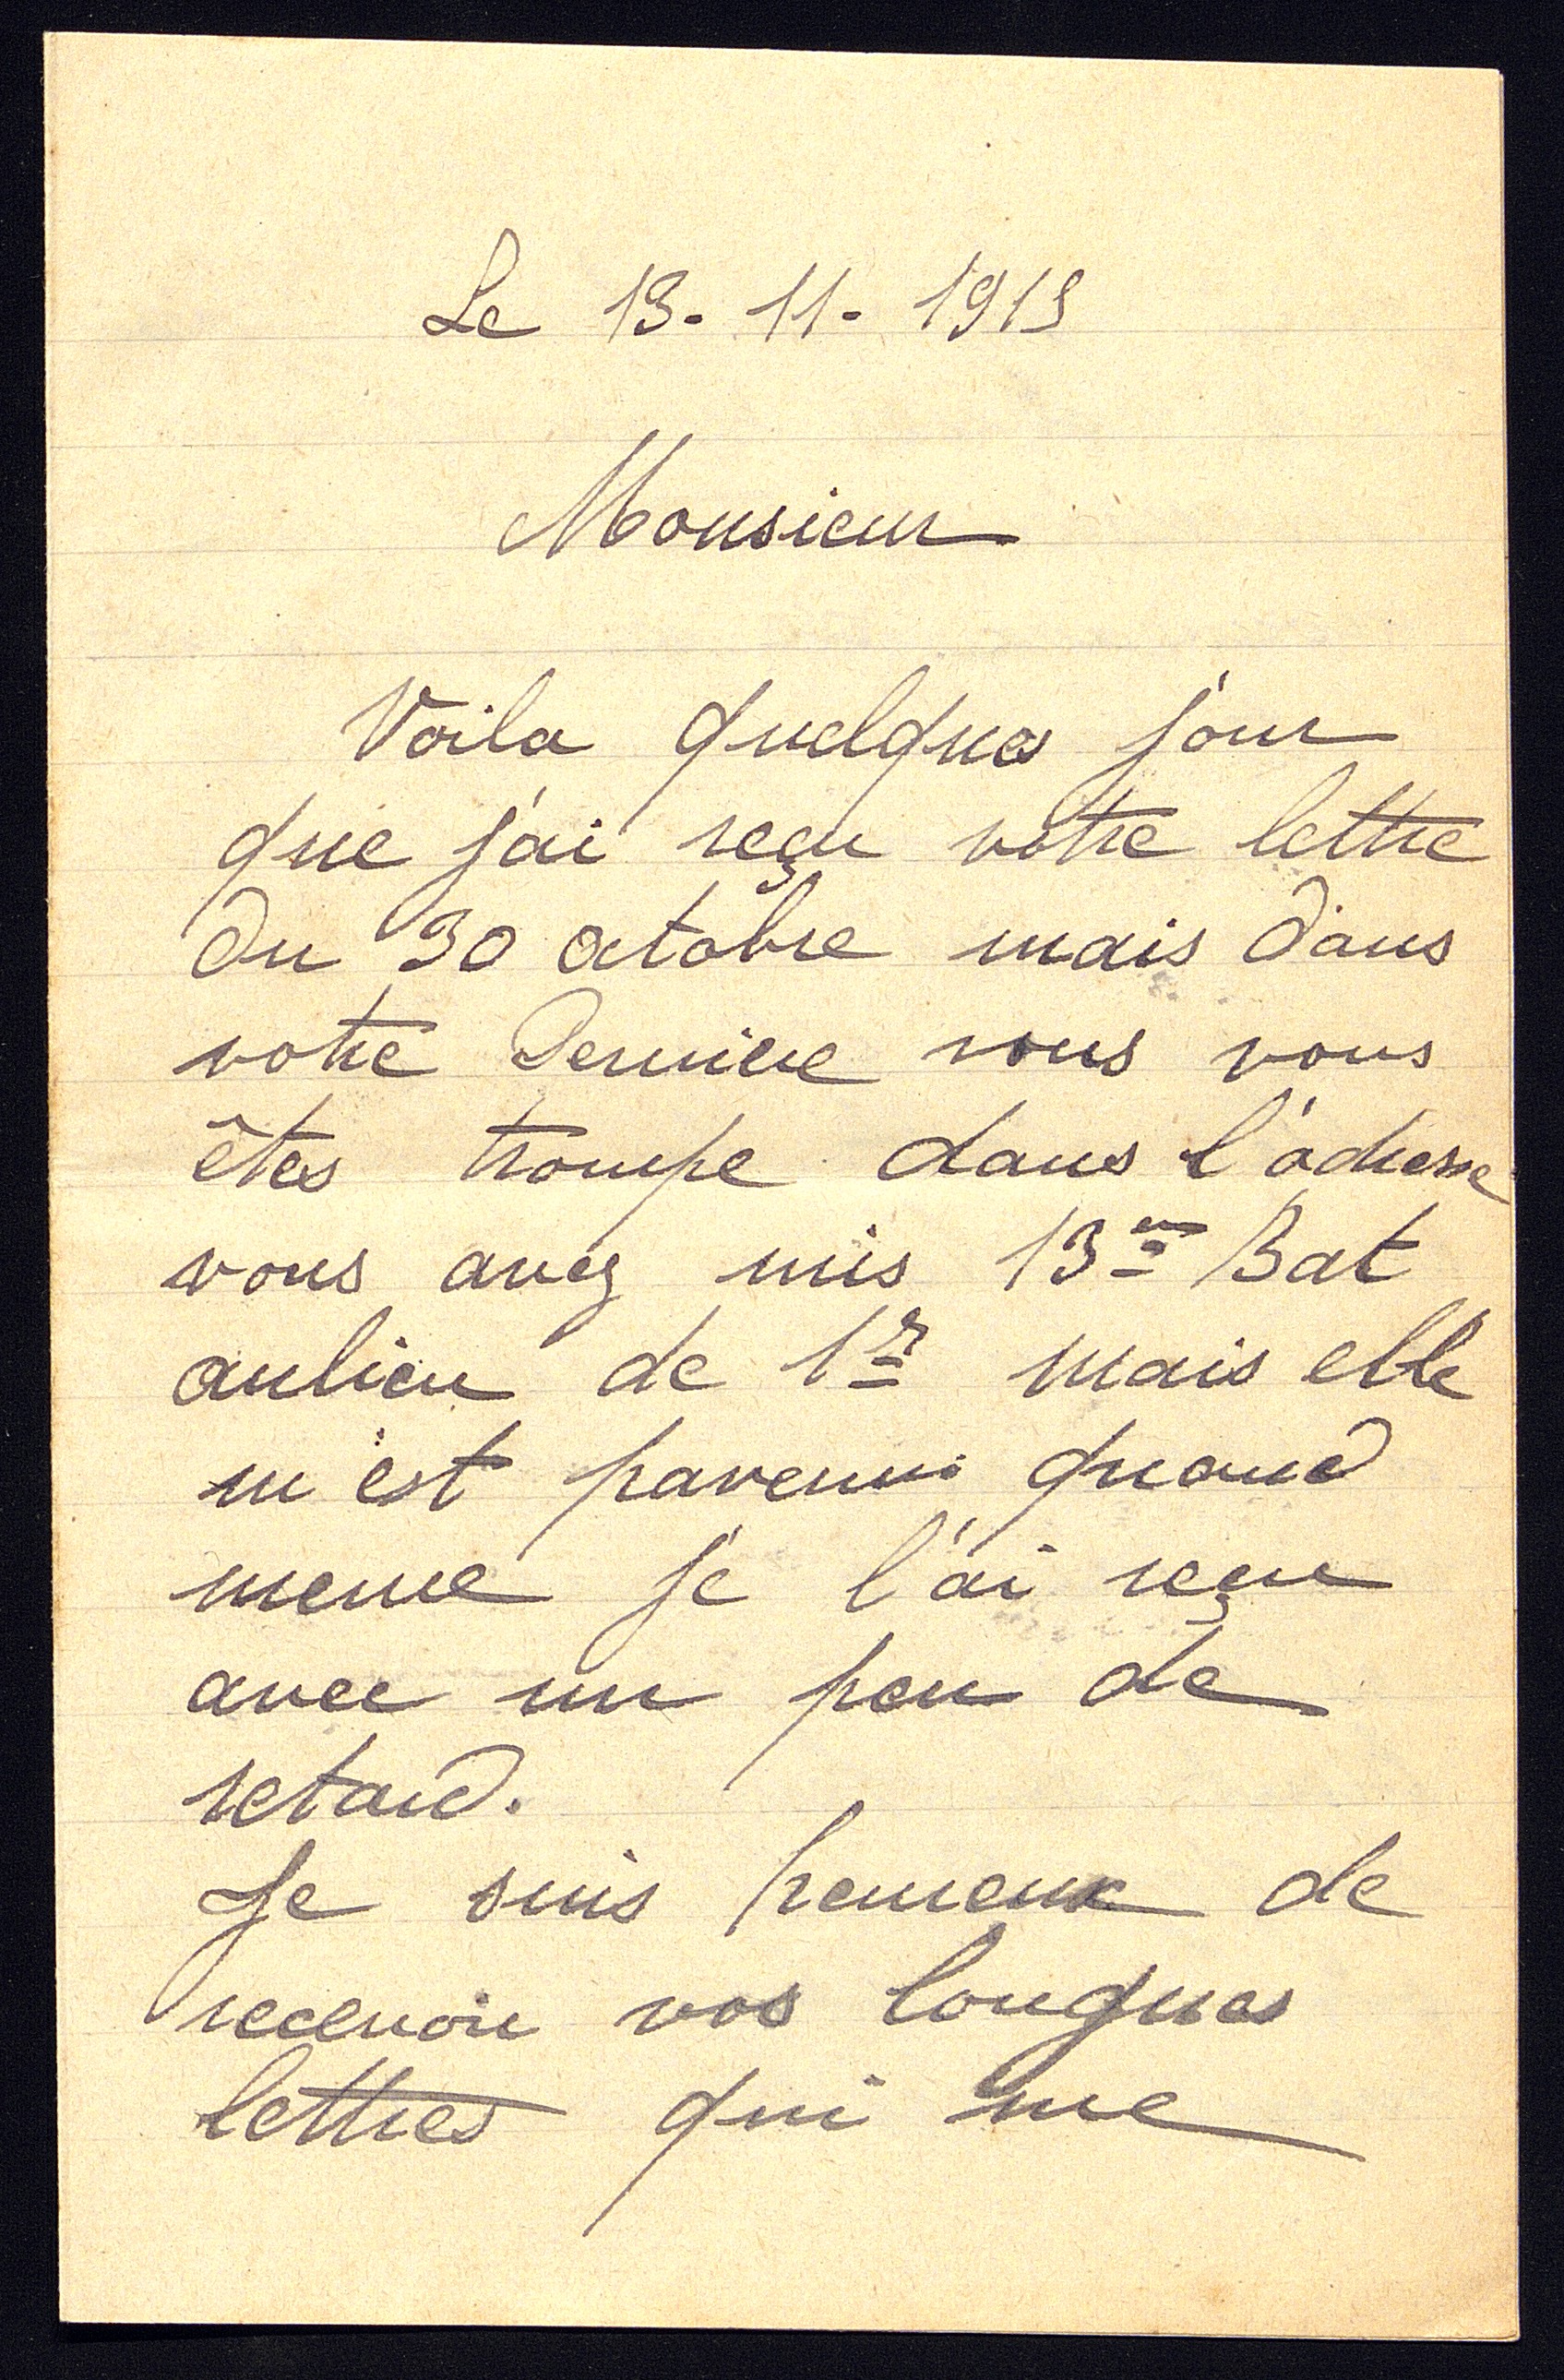 Le 13. 11. 1915
Monsieur
Voila quelques jour
que j'ai reçu votre lettre
du 30 octobre mais dans
votre derniere vous vous
êtes trompe dans l'adresse
vous avez mis 13em Bat
aulieu de 1er mais elle
m'est parvenu quand
meme je l'ai reçu
avec un peu de
retard.
Je suis heureux de
recevoir vos longues
lettres qui me